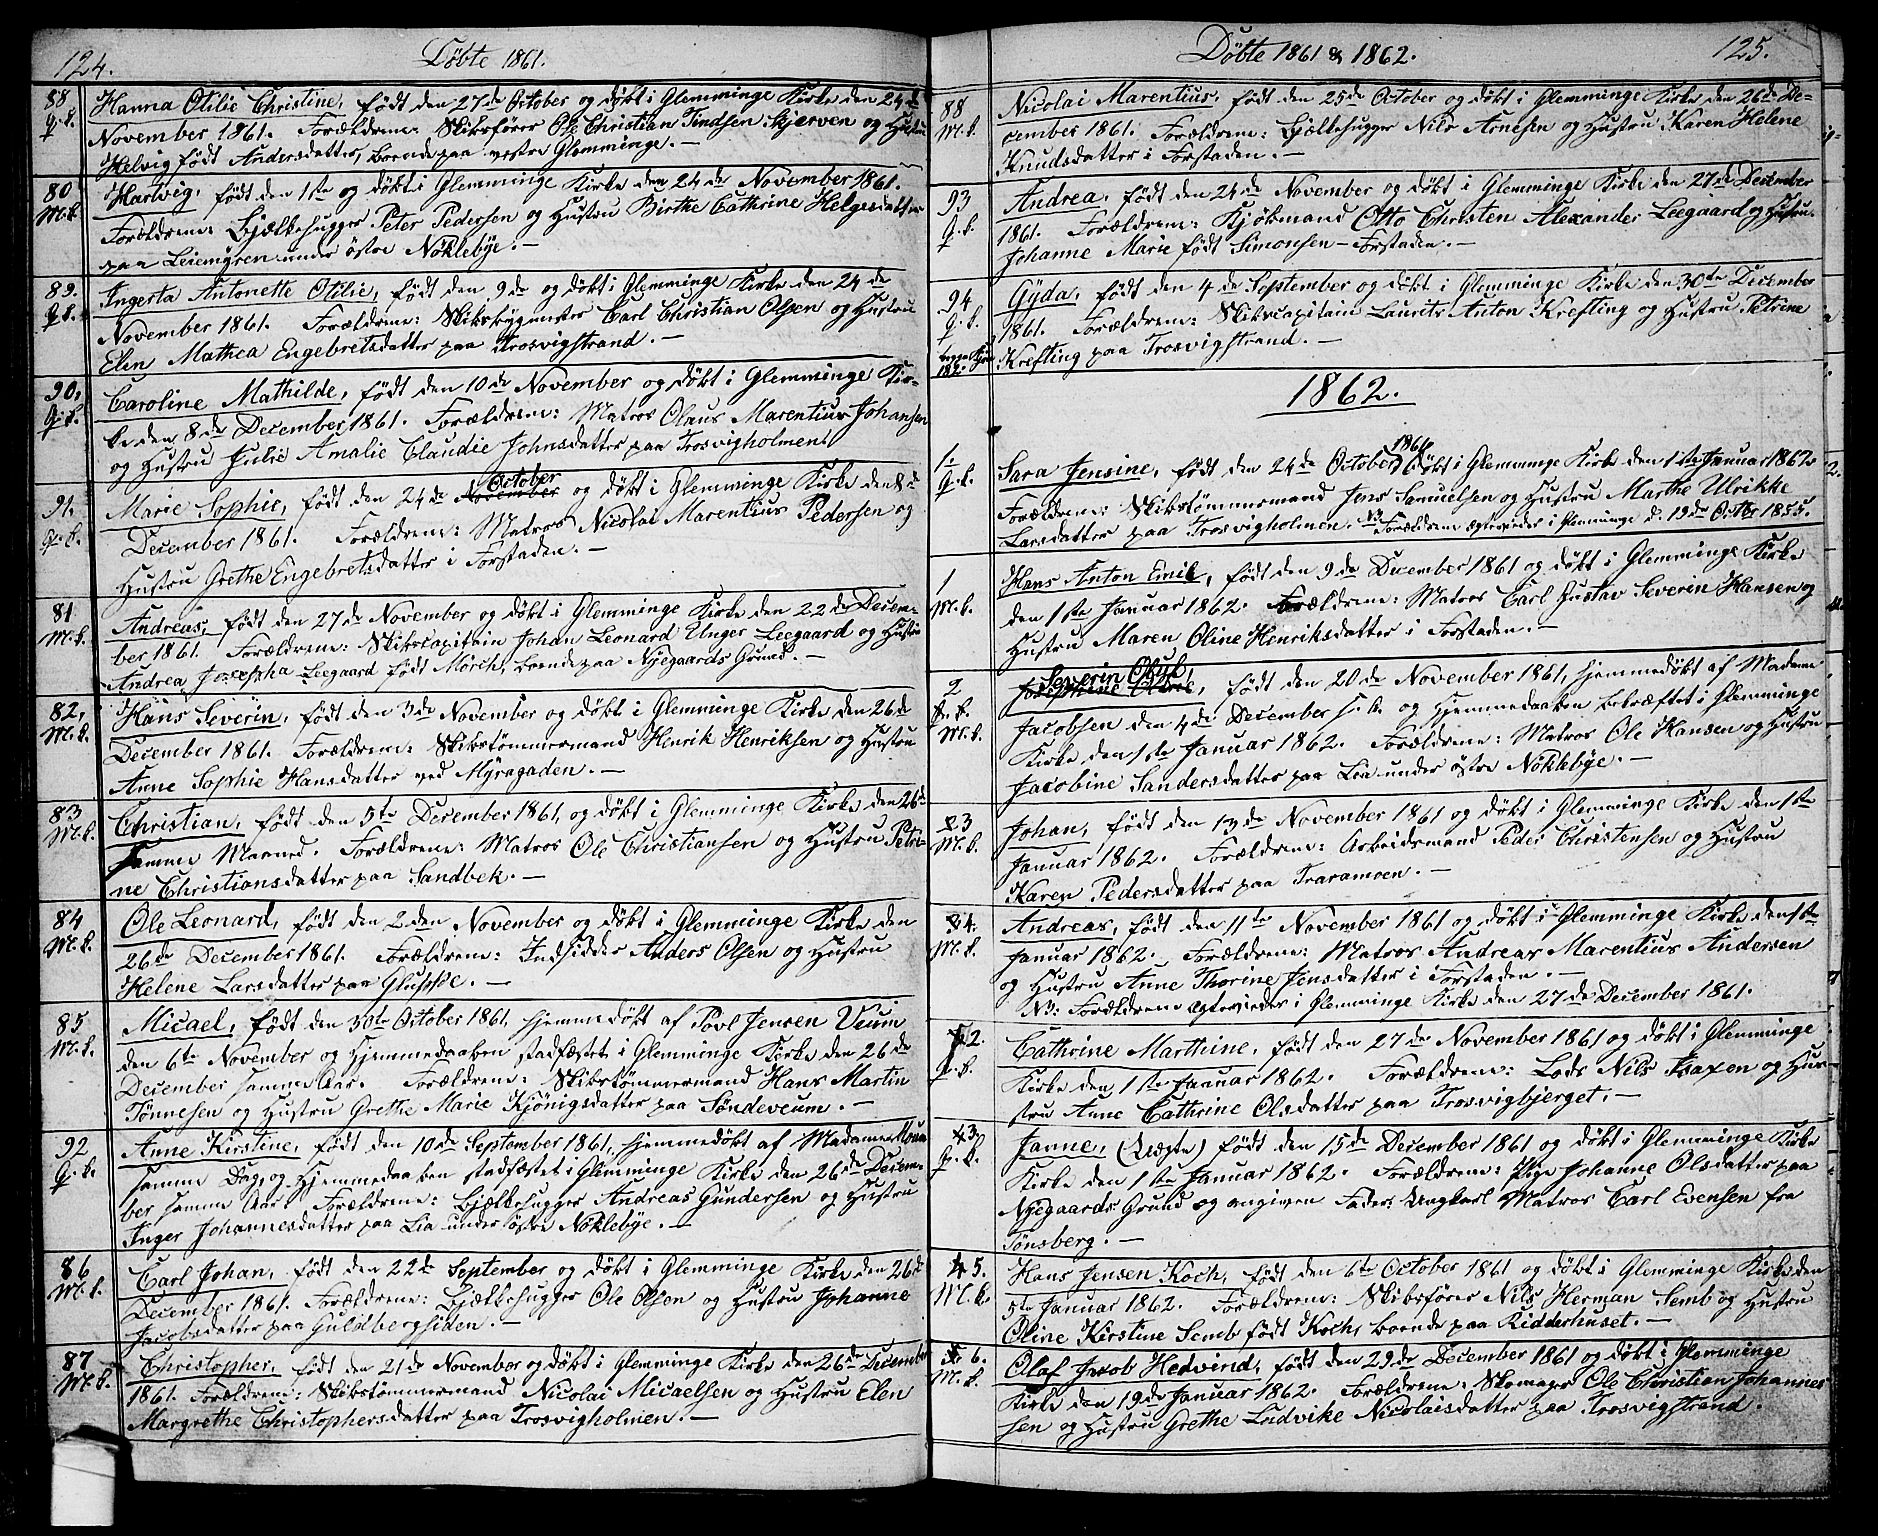 124.
Döbte 1861.
88 Hanna Otilie Christine, födt den 27de October og döbt i Glemminge Kirke den 24de
Q.k. November 1861. Forældrene: Skibsförer Ole Christian Tindsen Skjerven og Hustru
Helvig födt Andersdatter, boende paa vestre Glemminge. —
80 Hartvig, födt den 1ste og döbt i Glemminge Kirke den 24de November 1861.
M.k. Forældrene: Bjælkehugger Peter Pedersen og Hustru Birthe Cathrine Helgesdatter
paa Leiemyren under östre Nöklebye. —
89. Ingerta Antonette Otilie, födt den 9de og döbt i Glemminge Kirke den 24de
Q.k. November 1861. Forældrene: Skibsbygmester Carl Christian Olsen og Hustru
Elen Mathea Engebretsdatter paa Trosvigstrand. —
90, Caroline Mathilde, födt den 10de November og döbt i Glemminge Kir-
Q.k. ke den 8de December 1861. Forældrene: Matros Olaus Marentius Johansen
og Hustru Julie Amalie Claudie Johnsdatter paa Trosvigholmen.
October
91. Marie Sophie, födt den 24de November og döbt i Glemminge Kirke den 8de
Q.k. December 1861. Forældrene: Matros Nicolai Marentius Pedersen og
Hustru Grethe Engebretsdatter i Forstaden. —
81 Andreas, födt den 27de November og döbt i Glemminge Kirke den 22de Decem-
M.k. ber 1861. Forældrene: Skibscapitain Johan Leonard Unger Leegaard og Hustru
Andrea Josepha Leegaard födt Mörch, boende paa Nyegaards Grund. —
82, Hans Severin, födt den 3de November og döbt i Glemminge Kirke den 26de
M.k. December 1861. Forældrene: Skibstömmermand Henrik Henriksen og Hustru
Anne Sophie Hansdatter ved Myragaden. —
83 Christian, födt den 5te December 1861, og döbt i Glemminge Kirke den 26de
M.k. samme Maaned. Forældrene: Matros Ole Christiansen og Hustru Petri-
ne Christiansdatter paa Sandbek. —
84 Ole Leonard, födt den 2den November og döbt i Glemminge Kirke den
M.k. 26de December 1861. Forældrene: Indsidder Anders Olsen og Hustru
Helene Larsdatter paa —
85 Micael, födt den 30te October 1861, hjemmedöbt af Povl Jensen Veum
M.k. den 6te November og Hjemmedaaben stadfæstet i Glemminge Kirke den 26de
December samme Aar. Forældrene: Skibstömmermand Hans Martin
Tönnesen og Hustru Grethe Marie Kjönigsdatter paa Söndeveum. —
92 Anne Kirstine, födt den 10de September 1861, hjemmedöbt af Madame
Q.k. samme Dag, og Hjemmedaaben stadfæstet i Glemminge Kirke den 26de Decem-
ber samme Aar. Forældrene: Bjælkehugger Andreas Gundersen og Hustru
Inger Johannesdatter paa Lia under östre Nöklebye. —
86 Carl Johan, födt den 22de September og döbt i Glemminge Kirke den 26de
M.k. December 1861. Forældrene: Bjælkehugger Ole Olsen og Hustru Johanne
Jacobsdatter paa Guldbergsiden. —
87 Christopher, födt den 21de November og döbt i Glemminge Kirke den 26de December
M.k. 1861. Forældrene: Skibstömmermand Nicolai Micaelsen og Hustru Elen
Margrethe Christophersdatter paa Trosvigholmen. —
Döbte 1861 & 1862.
125.
88 Nicolai Marentius, födt den 25de October og döbt i Glemminge Kirke den 26de De-
M.k. cember 1861. Forældrene: Bjælkehugger Nils Arnesen og Hustru Karen Helene
Knudsdatter i Forstaden. —
93 Andrea, födt den 24de November og döbt i Glemminge Kirke den 27de December
Q.k. 1861. Forældrene: Kjöbmand Otto Christen Alexander Leegaard og Hustru
Johanne Marie födt Simonsen — Forstaden. —
94 Gyda, födt den 4de September og döbt i Glemminge Kirke den 30te December
Q.k. 1861. Forældrene: Skibscapitain Laurits Anton Krefting og Hustru Petrine
182. Krefting paa Trosvigstrand. —
1862.
1861
1. Sara Jensine, födt den 24de October döbt i Glemminge Kirke den 1ste Januar 1862.
Q.k. Forældrene: Skibstömmermand Jens Samuelsen og Hustru Marthe Ulrikke
Larsdatter paa Trosvigholmen. NB Forældrene egteviede i Glemminge d. 19de Octbr 1855.
1 Hans Anton Emil, födt den 9de December 1861 og döbt i Glemminge Kirke
M.k. den 1ste Januar 1862. Forældrene: Matros Carl Gustav Severin Hansen og
Hustru Maren Oline Henriksdatter i Forstaden. —
Severin Oluf,
2 födt den 20de November 1861, hjemmedöbt af Madame
M.k. Jacobsen den 4de December s. A. og Hjemmedaaben bekræftet i Glemminge
Kirke den 1ste Januar 1862. Forældrene: Matros Ole Hansen og Hustru
Jacobine Sandersdatter paa Lia under östre Nöklebye. —
3 Johan, födt den 13de November 1861 og döbt i Glemminge Kirke den 1ste
M.k. Januar 1862. Forældrene: Arbeidsmand Peder Christensen og Hustru
Karen Pedersdatter paa Traramoen. —
4. Andreas, födt den 11te November 1861 og döbt i Glemminge Kirke den 1ste
M.k. Januar 1862. Forældrene: Matros Andreas Marentius Andersen
og Hustru Anne Thorine Jensdatter i Forstaden. —
NB: Forældrene egteviedes i Glemminge Kirke den 27de December 1861.
2. Cathrine Marthine, födt den 27de November 1861 og döbt i Glemminge
Q.k. Kirke den 1ste Januar 1862. Forældrene: Lods Nils Isaxen og Hu-
stru Anne Cathrine Olsdatter paa Trosvigbjerget. —
3. Janne, (Uægte) födt den 15de December 1861 og döbt i Glemminge Kirke
Q.k. Kirke den 1ste Januar 1862. Forældrene: Pige Johanne Olsdatter paa
Nyegaards Grund og angiven Fader: Ungkarl Matros Carl Evensen fra
Tönsberg. —
5. Hans Jensen Koch, födt den 6te October 1861 og döbt i Glemminge Kirke den
M.k. 5te Januar 1862. Forældrene: Skibsförer Nils Herman Semb og Hustru
Oline Kirstine Semb födt Koch, boende paa Ridderhuset. —
6. Olaf Jacob Hedvind, födt den 29de December 1861 og döbt i Glemminge
M.k. Kirke den 19de Januar 1862. Forældrene: Skomager Ole Christian Johannes-
sen og Hustru Grethe Ludvike Nicolaisdatter paa Trosvigstrand. —